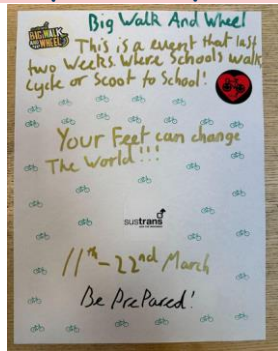 Big Walk And Wheel
BIG WALK
AND WHEEL
This is a event that last
two Weeks where Schools walk
Cycle or Scoot to School!
Your Feet can change
The World!!!
sustrans
11th - 22nd March
Be PrePared!